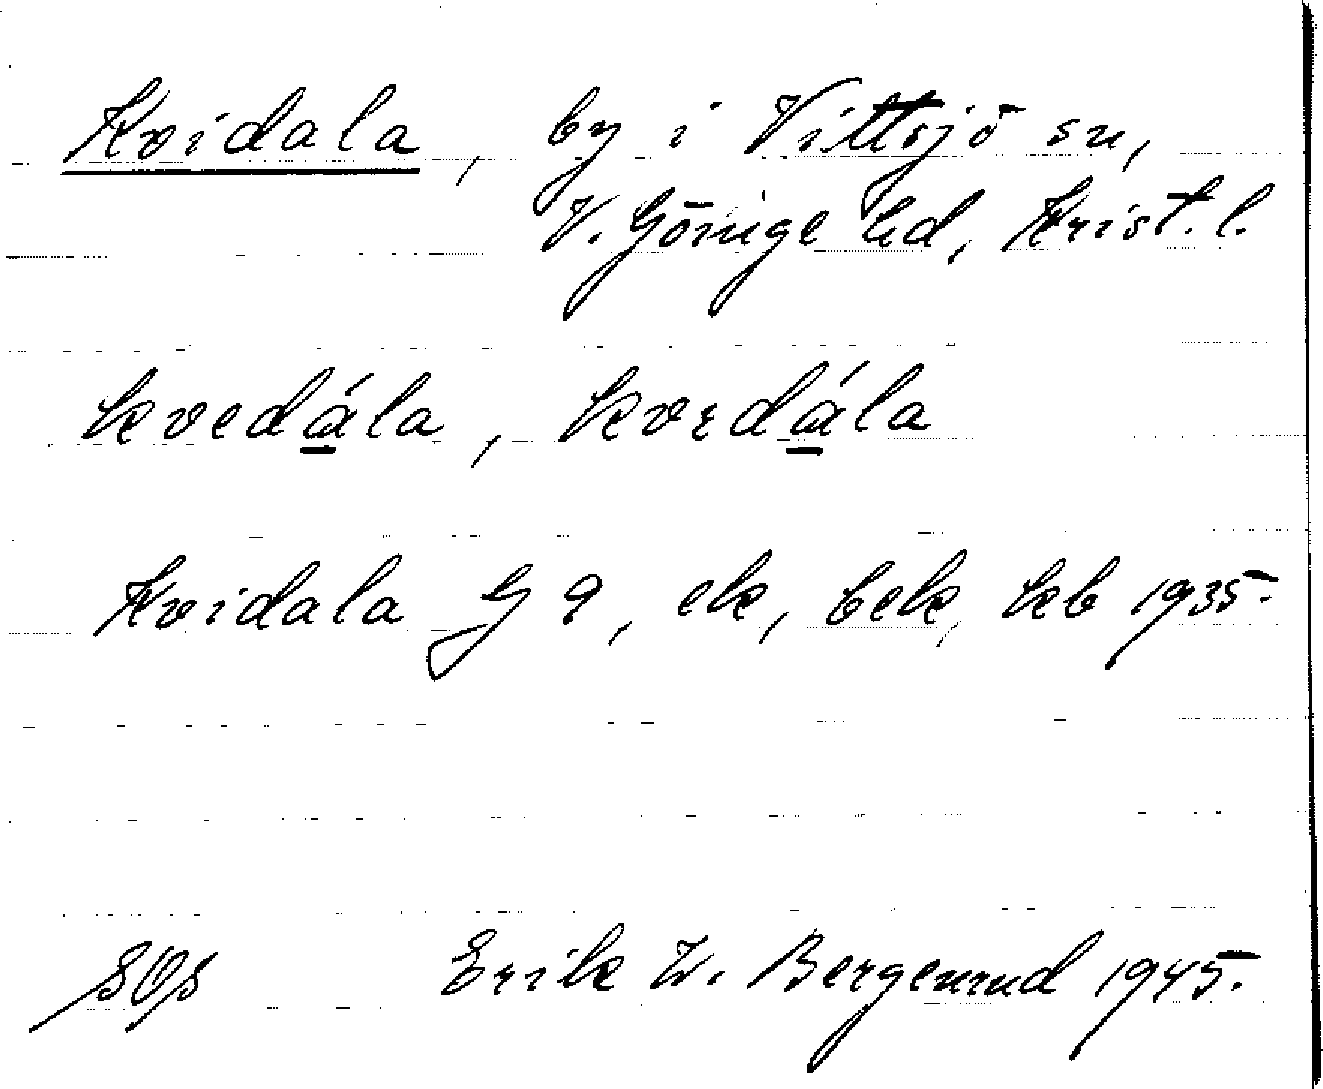 Kvidala, by i Vittsjö sn,
V. Göinge hd, Krist. l.
kvedála, kvɛdála
Kvidala G 9, ek, bek, kb 1935.
SOS Erik W. Bergenrud 1945.